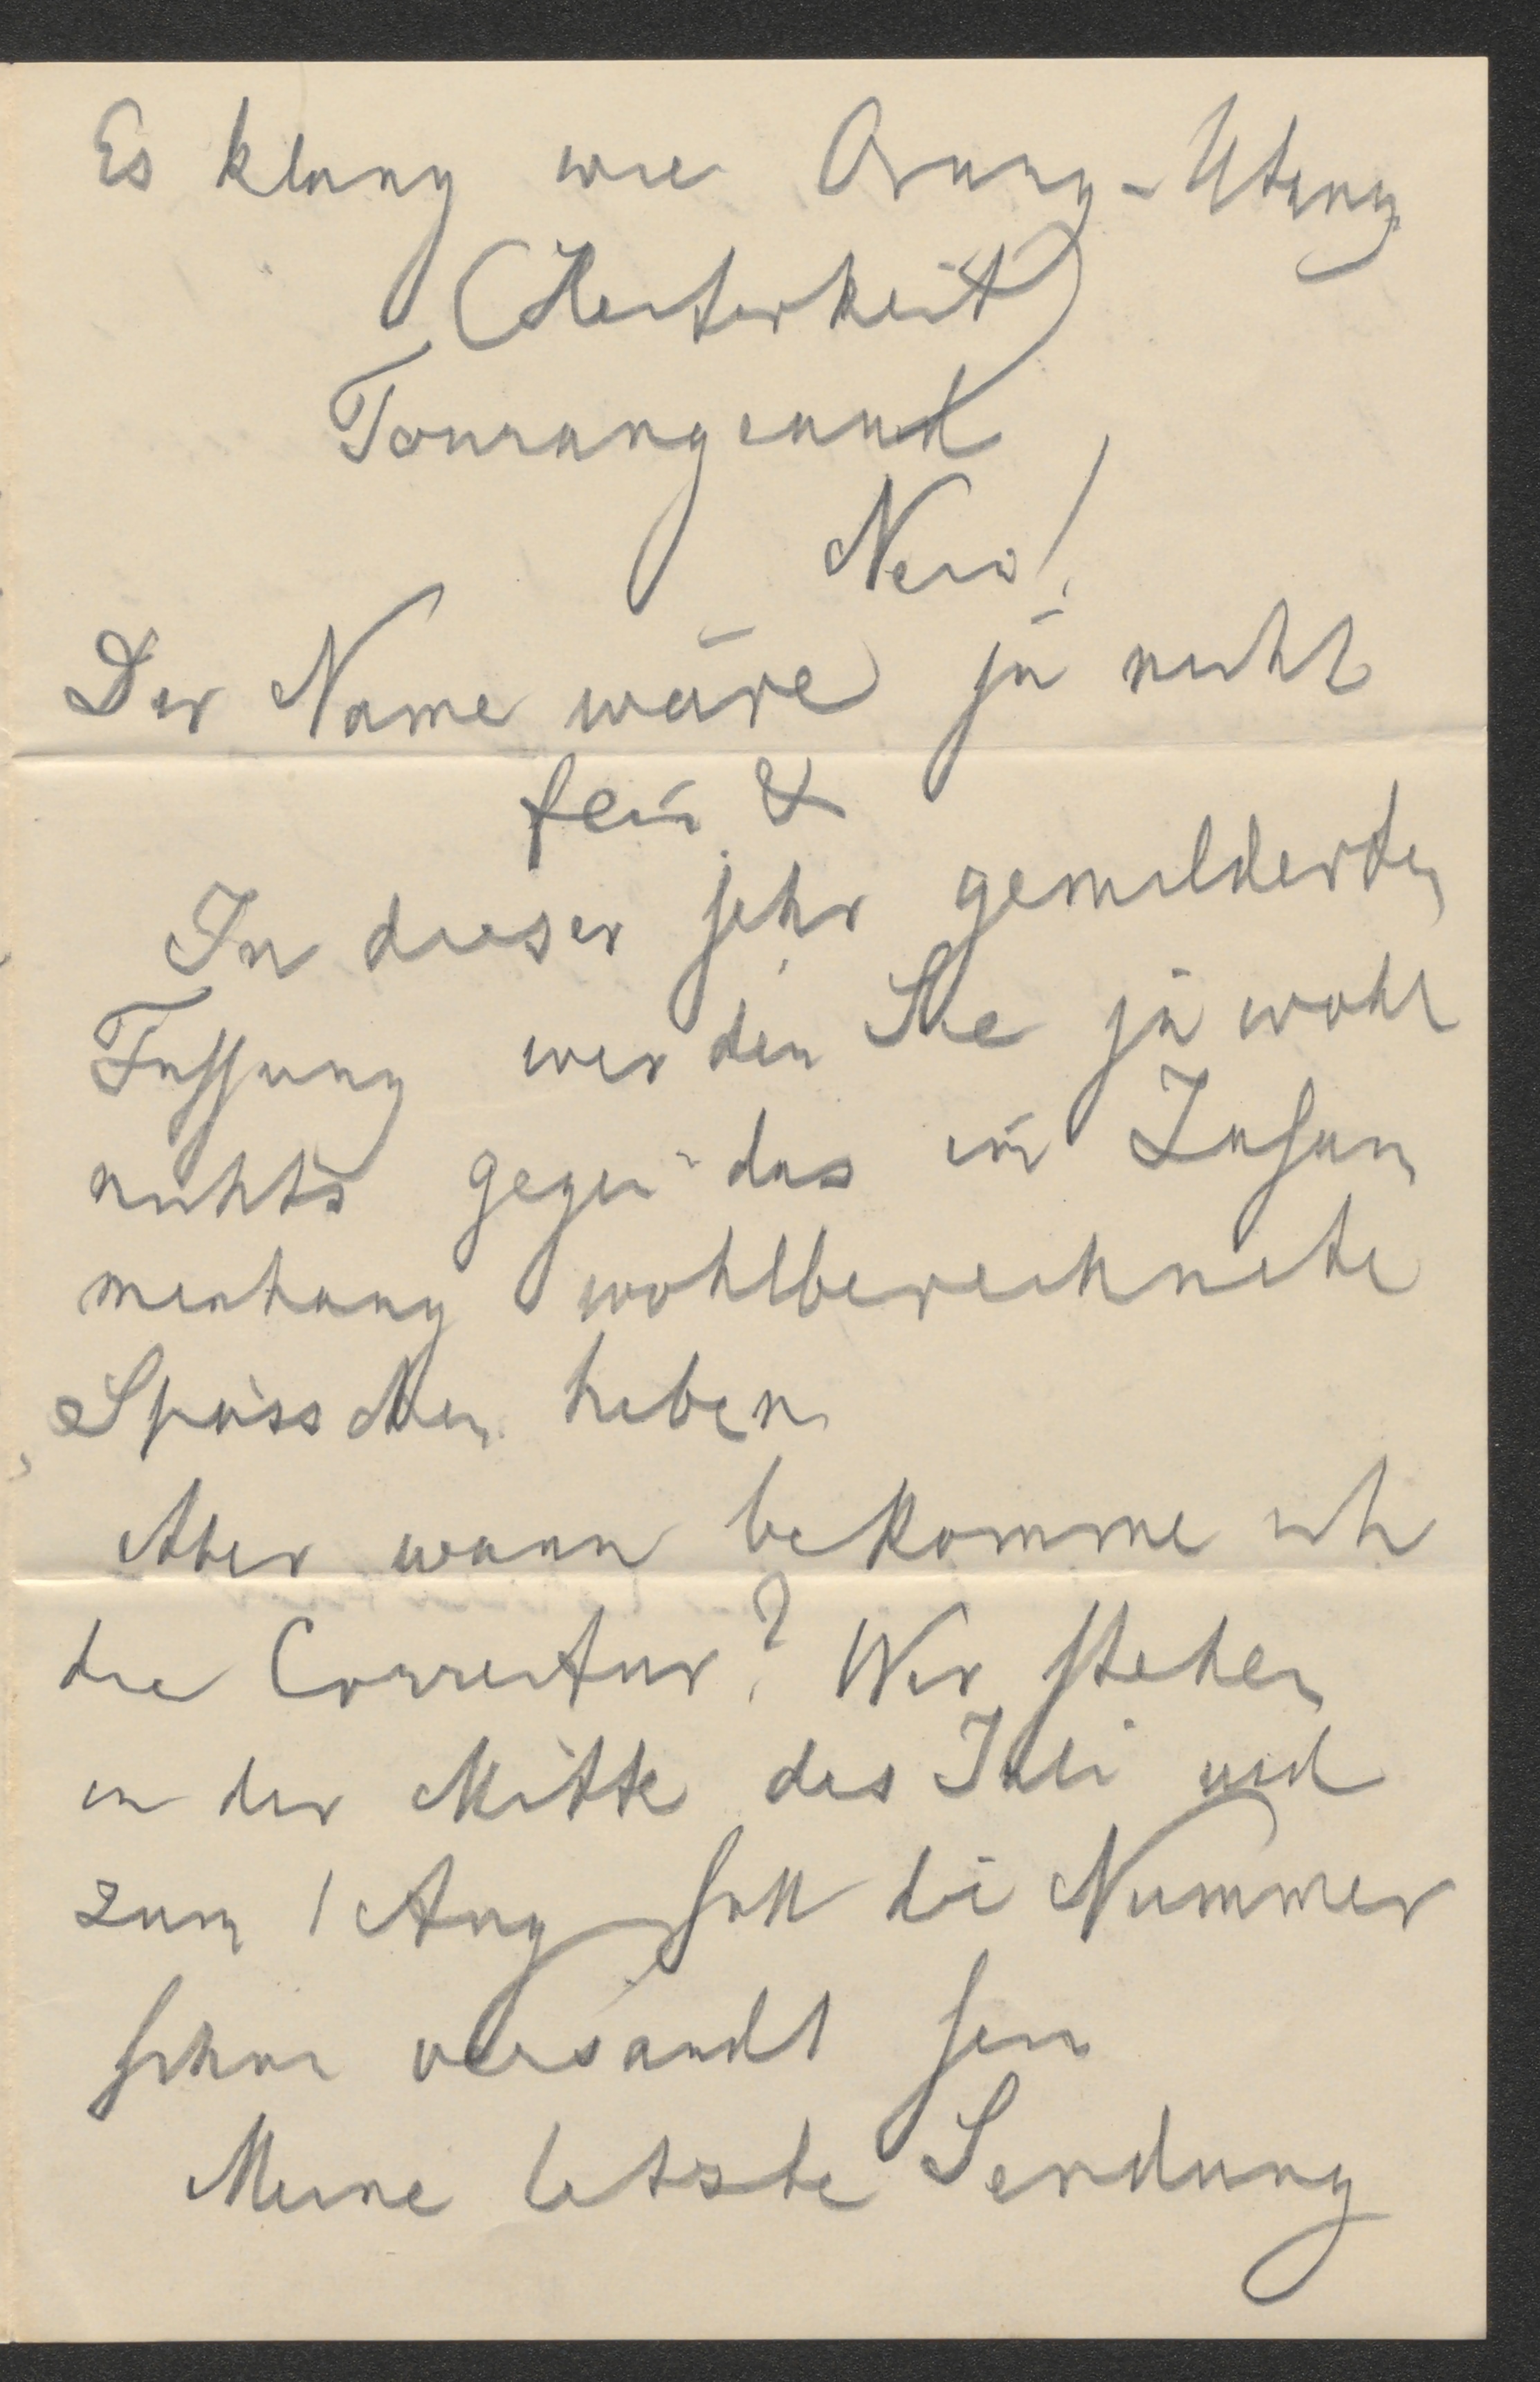 Es klang wie Orang-Utang
(Heiterkeit)
Tourangeau
Nein!
Der Name wäre ja nicht
fein &
In dieser sehr gemilderten
Fassung werden Sie ja wohl
nichts gegen das im Zusam
menhang wohlberechnete
Spässchen haben
Aber wann bekomme ich
die Correctur? Wir stehen
in der Mitte des Juli und
zum 1 Aug soll die Nummer
schon versandt sein
Meine letzte Sendung